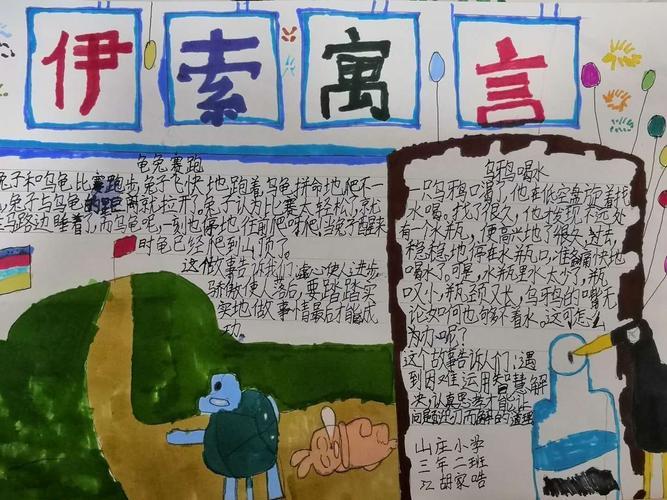 伊索寓言
龟兔赛跑
兔子和乌龟比赛跑步,兔子飞快地跑着,乌龟拼命地爬,不一
会,兔子与乌龟的距离就拉开了。兔子认为比赛太轻松了,就
在马路边睡着了,而乌龟呢,一刻也停地往前爬呀爬,当兔子醒来
时龟已经爬到山顶了。
这个故事告诉我们:虚心使人进步,
骄傲使人落后,要踏踏实
实地做事情最后才能成
功。
乌鸦喝水
一只乌鸦口喝了,他在低空盘旋着找
水喝。找了很久,他发现不远处
有一个水瓶,便高兴地了很久过去,
稳稳地停在水瓶口,准备痛快地
喝水了。可是,水瓶里水太少了,瓶
口又小,瓶颈又长,乌鸦的嘴无
论如何也够不着水。这可怎么
为力呢?
这个故事告诉人们:遇
到困难,运用智慧解
决,认真思考才能让
问题迎刃而解的道理
山庄小学
三年二班
江胡家皓